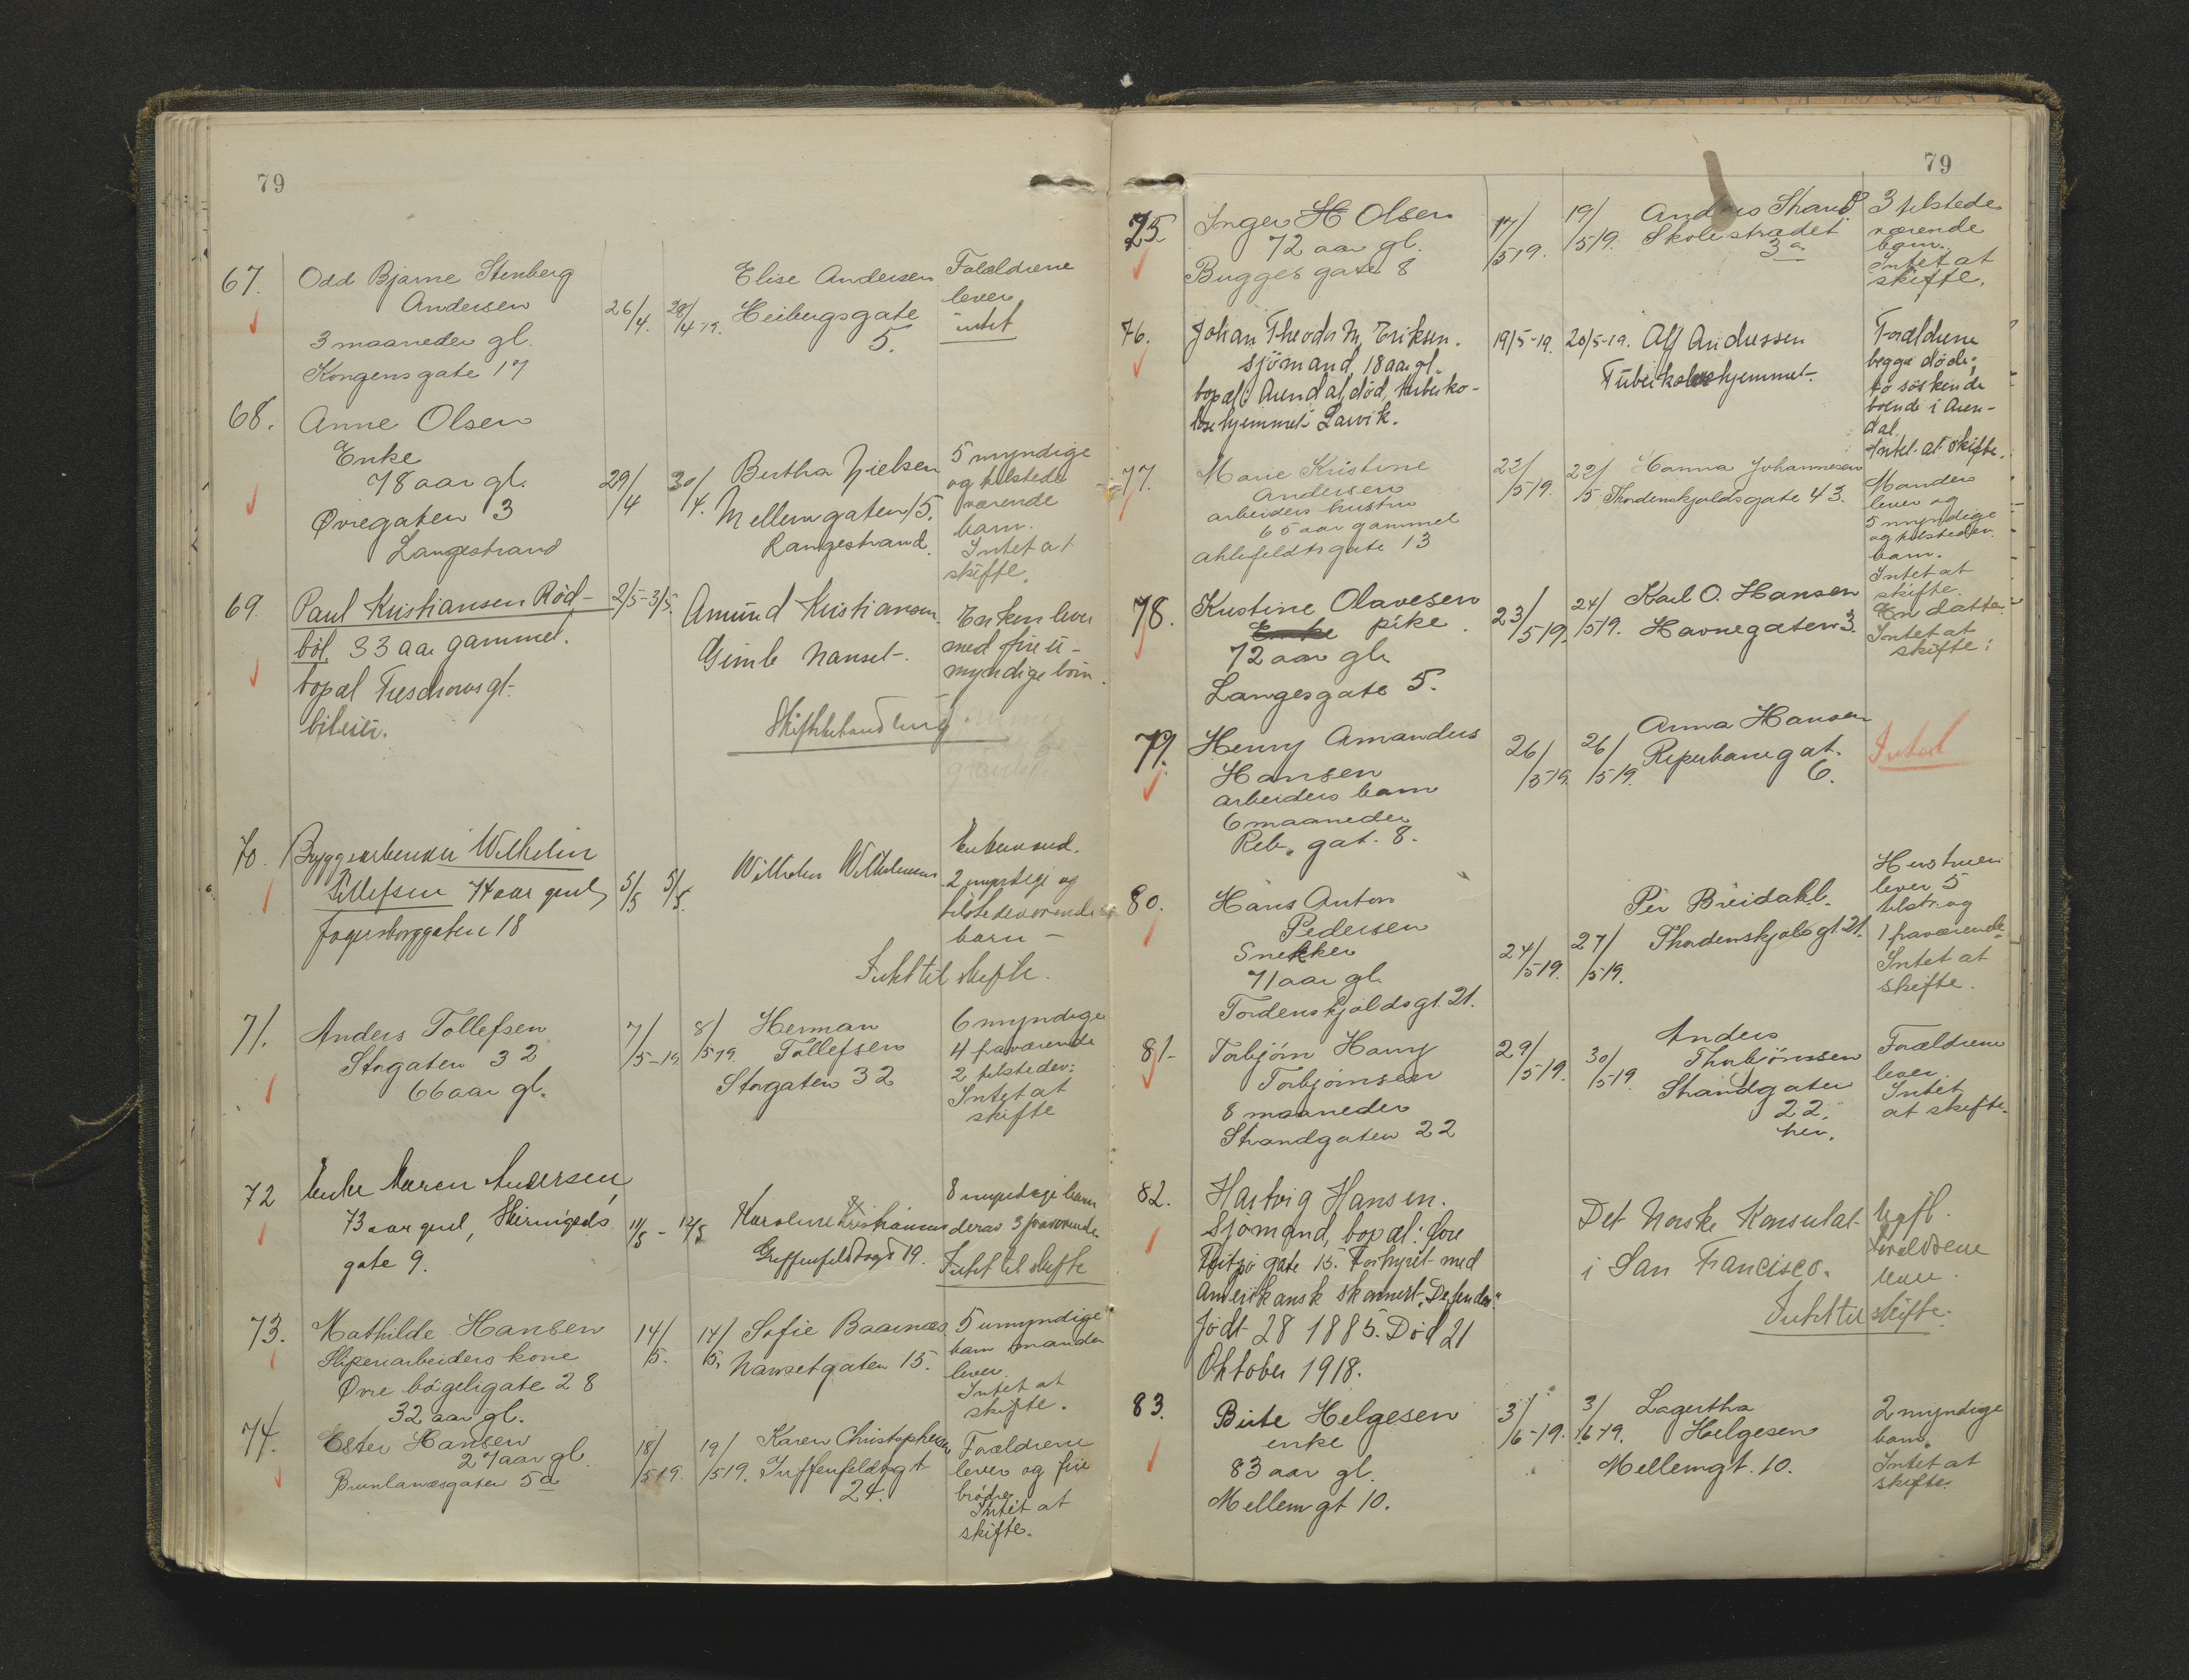 79
67. Odd Bjarne Stenberg
Andersen
3 maaneder gl.
Kongensgate 17
26/4. 28/4-19.
Elise Andersen
Heibergsgate
5.
Forældrene
lever
intet
68. Anne Olsen
Enke
78 aar gl.
Øvregaten 3
Langestrand
29/4 30/4.
Bertha Nielsen
Mellemgaten 15.
Langestrand.
5 myndige
og tilstede
værende
barn.
Intet at
skifte.
69. Paul Kristiansen Röd-
böl, 33 aar gammel.
bopæl Treschowsgt.
2/5-3/5.
Amund Kristiansen.
Gimle Nanset.
Enken lever
med fire u-
myndige börn.
Skiftebehandling
70. Bryggearbeider Wilhelm
Tollefsen 74 aar gml,
Fagersborggaten 18
5/5 5/5.
Wilhelm Wilhelmsen
Enkemand.
2 myndige og
tilstedeværende
barn –
Intet til skifte.
71. Anders Tollefsen
Storgaten 32
66 aar gl.
7/5-19 8/5 19.
Herman
Tollefsen
Storgaten 32
6 myndige
4 fraværende
2 tilstedev.
Intet at
skifte
72 Enke Maren Andersen,
73 aar gml,
gate 9.
11/5 - 12/5
Karoline Kristiansen
Griffenfeldtsgt 19.
8 myndige barn
derav 3 fraværende
Intet til skifte
73. Mathilde Hansen
Sliperiarbeiders kone
Øvre bøgeligate 28
32 aar gl.
14/5. 14/5.
Sofie Baarnæs
Nansetgaten 15.
5 umyndige
barn manden
lever.
Intet at
skifte.
74. Ester Hansen
27 aar gl.
Brunlanæsgaten 5a
18/5 19. 19/5 19.
Karen Christophersen
Griffenfeldtsgt
24.
Forældrene
lever og fire
brødre
Intet at
skifte.
79
75 Inger H Olsen
72 aar gl.
Bugges gate 8
17/5 19. 19/5 19.
Anders Strand
Skolestrædet
3a
3 tilstede
værende
barn.
Intet at
skifte.
76. Johan Theodor M. Eriksen.
sjömand, 18 aar gl.
bopæl: Arendal, död, tuberko-
losehjemmet Larvik.
19/5-19. 20/5-19.
Alf Andressen
Tuberkolosehjemmet.
Forældrene
begge döde;
to söskende
boende i Aren-
dal
Intet at skifte.
77. Marie Kristine
Andersen
arbeiders hustru
65 aar gammel
Ahlefeldtsgate 13
22/5 19. 22/5
Hanna Johannesen
Thordenskjoldsgate 43.
Manden
lever og
5 myndige
og tilstedev.
barn.
Intet at
skifte.
78. Kristine Olavesen
Enke pike.
72 aar gl.
Langesgate 5.
23/5 19. 24/5 19.
Karl O. Hansen
Havnegaten 3.
En datter.
Intet at
skifte.
79. Henry Amandus
Hansen
arbeiders barn
6 maaneder
Reb. gat. 8.
26/5 19. 26/5 19.
Anna Hansen
Reperbanegat.
6.
Intet
80. Hans Anton
Pedersen
Snekker
71 aar gl.
Tordenskjoldsgt. 21.
24/5 19. 27/5 19.
Per Breidahl.
Thordenskjolsgt. 21.
Hustruen
lever 5
tilst. og
1 fraværende.
Intet at
skifte.
81- Torbjörn Harry
Torbjörnsen
8 maaneder
Strandgaten 22
29/5 19. 30/5 19.
Anders
Thorbjörnsen
Strandgaten
22.
her.
Forældrene
lever.
Intet
at skifte.
82. Hartvig Hansen.
Sjömand, bopæl: Övre
gate 15. Forhyret med
Amerikansk skonnert "Defender".
Födt 28 1885. Död 21
Oktober 1918.
Det Norske Konsulat
i San Francisco.
Ugift.
Forældrene
lever.
Intet til skifte.
83. Birte Helgesen
enke
83 aar gl.
Mellemgt 10.
3/6-19. 3/6 19.
Lagertha
Helgesen
Mellemgt. 10.
2 myndige
barn.
Intet at
skifte.